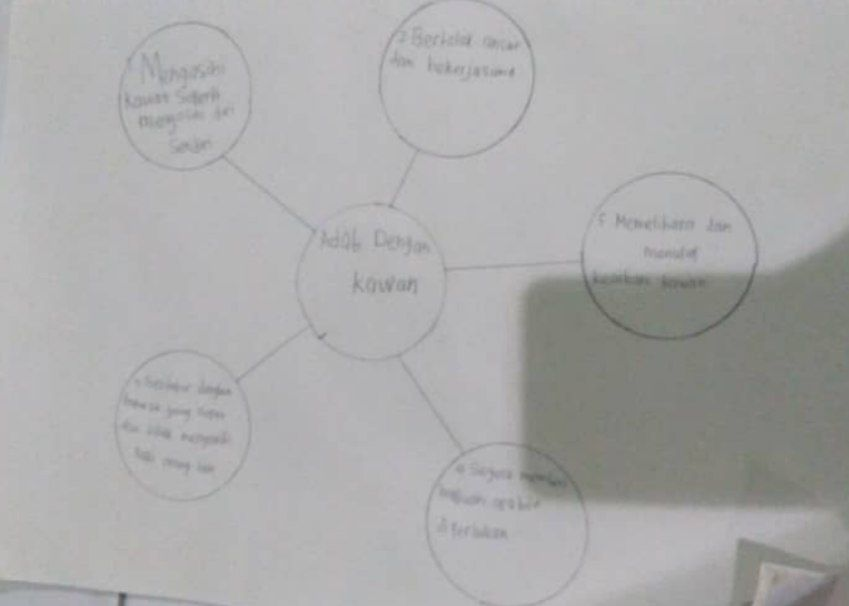 Adab Dengan
kawan
1 Mengasihi
kawan Seperti
mengasihi diri
Sendiri
2 Bertolak ansur
dan bekerjasama
3 Bertutur dengan
bahasa yang sopan
dan tidak menyakiti
hati orang lain
4 Segera memberi
bantuan apabila
diperlukan
5 Memelihara dan
menutup
keaiban kawan